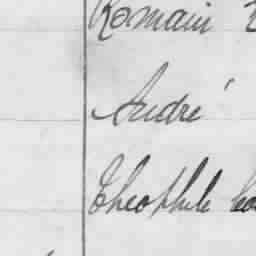 Romain
André
Théophile